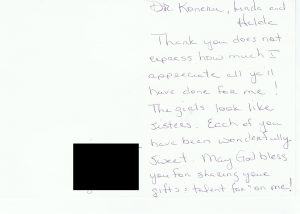 Dr Koneru, Linda and
Halda
Thank you does not
express how much I
appreciate all ya'll
have done for me!
The girls look like
sisters. Each of you
have been wonderfully
sweet. May God bless
you for sharing your
gifts + talent for "on me!